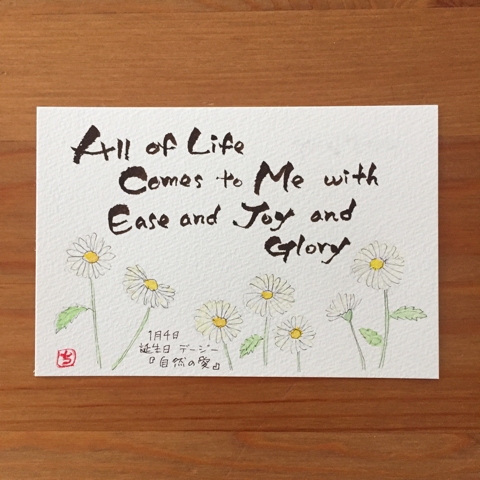 All of Life
Comes to Me with
Ease and Joy and
Glory
1月4日
誕生日 デージー
『自然の愛』
ち